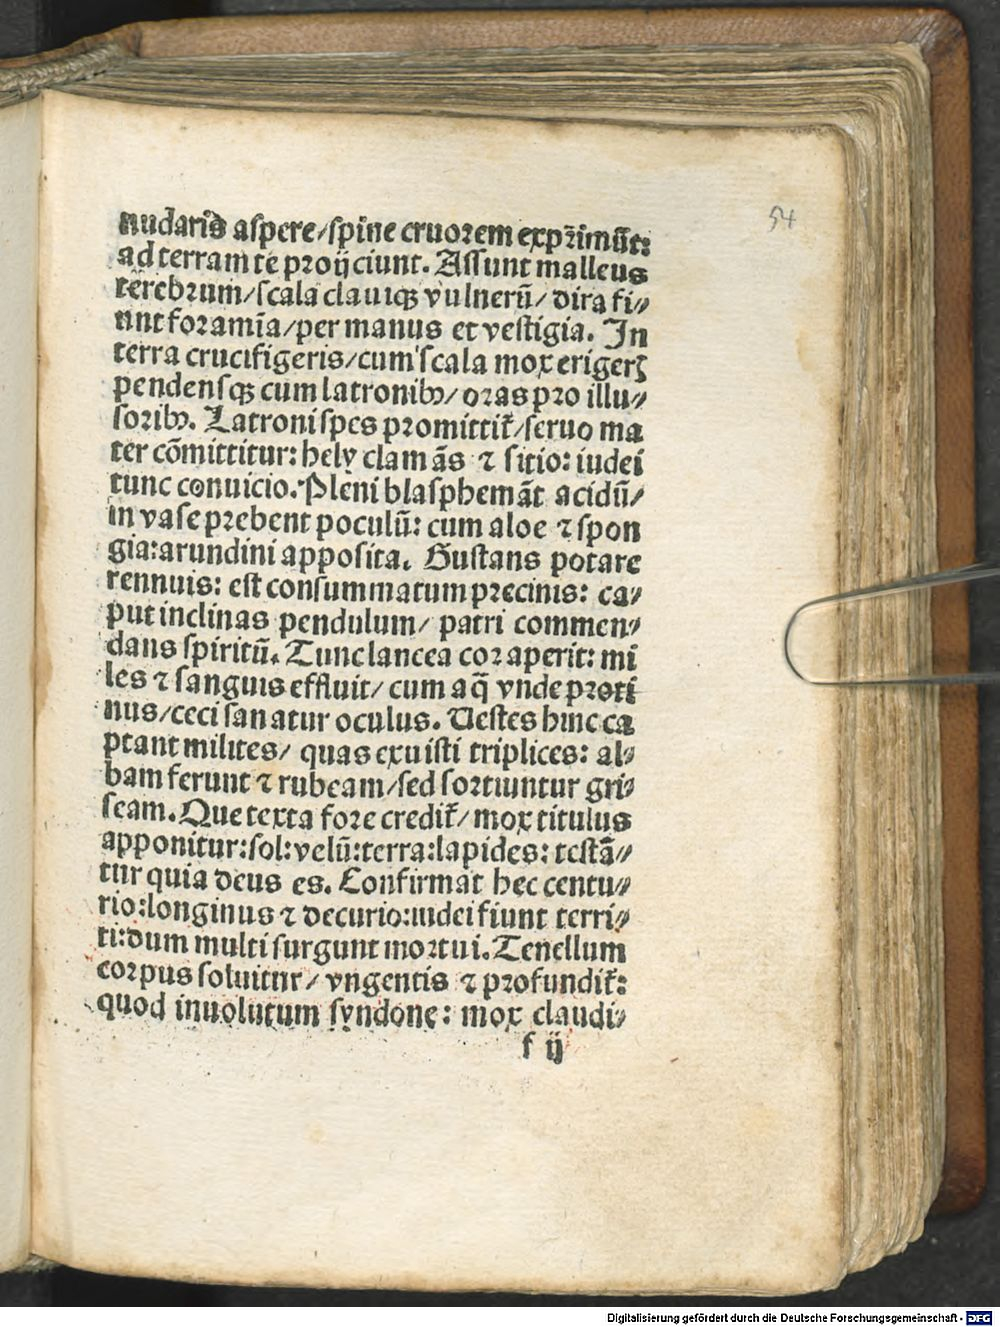 54
nudaris aspere/spine cruorem exprimūt:
ad terram te proijciunt. Assunt malleus
terebrum/scala clauiqꝫ vulnerū/ dira fi⸗
unt foramīa/per manus et vestigia. In
terra crucifigeris/cum scala mox erigerꝭ
pendensqꝫ cum latronibꝰ/ oras pro illu⸗
soribꝰ. Latroni spes promittit̄/seruo ma
ter cōmittitur: hely clamās ⁊ sitio: iudei
tunc conuicio. Pleni blasphemāt acidū/
in vase prebent poculū: cum aloe ⁊ spon
gia:arundini apposita. Gustans potare
rennuis: est consummatum precinis: ca⸗
put inclinas pendulum/ patri commen⸗
dans spiritū. Tunc lancea cor aperit: mi
les ⁊ sanguis effluit/ cum aq̄ vnde proti
nus/ceci sanatur oculus. Uestes hinc ca
ptant milites/ quas exuisti triplices: al⸗
bam ferunt ⁊ rubeam/sed sortiuntur gri⸗
seam. Que texta fore credit̄/ mox titulus
apponitur:sol:velū:terra:lapides: testā⸗
tur quia deus es. Confirmat hec centu⸗
rio:longinus ⁊ decurio:iudei fiunt terri⸗
ti:dum multi surgunt mortui. Tenellum
corpus soluitur/ vngentis ⁊ profundit̄:
quod inuolutum syndone: mox claudi⸗
f ij
Digitalisierung gefördert durch die Deutsche Forschungsgemeinschaft - DFG